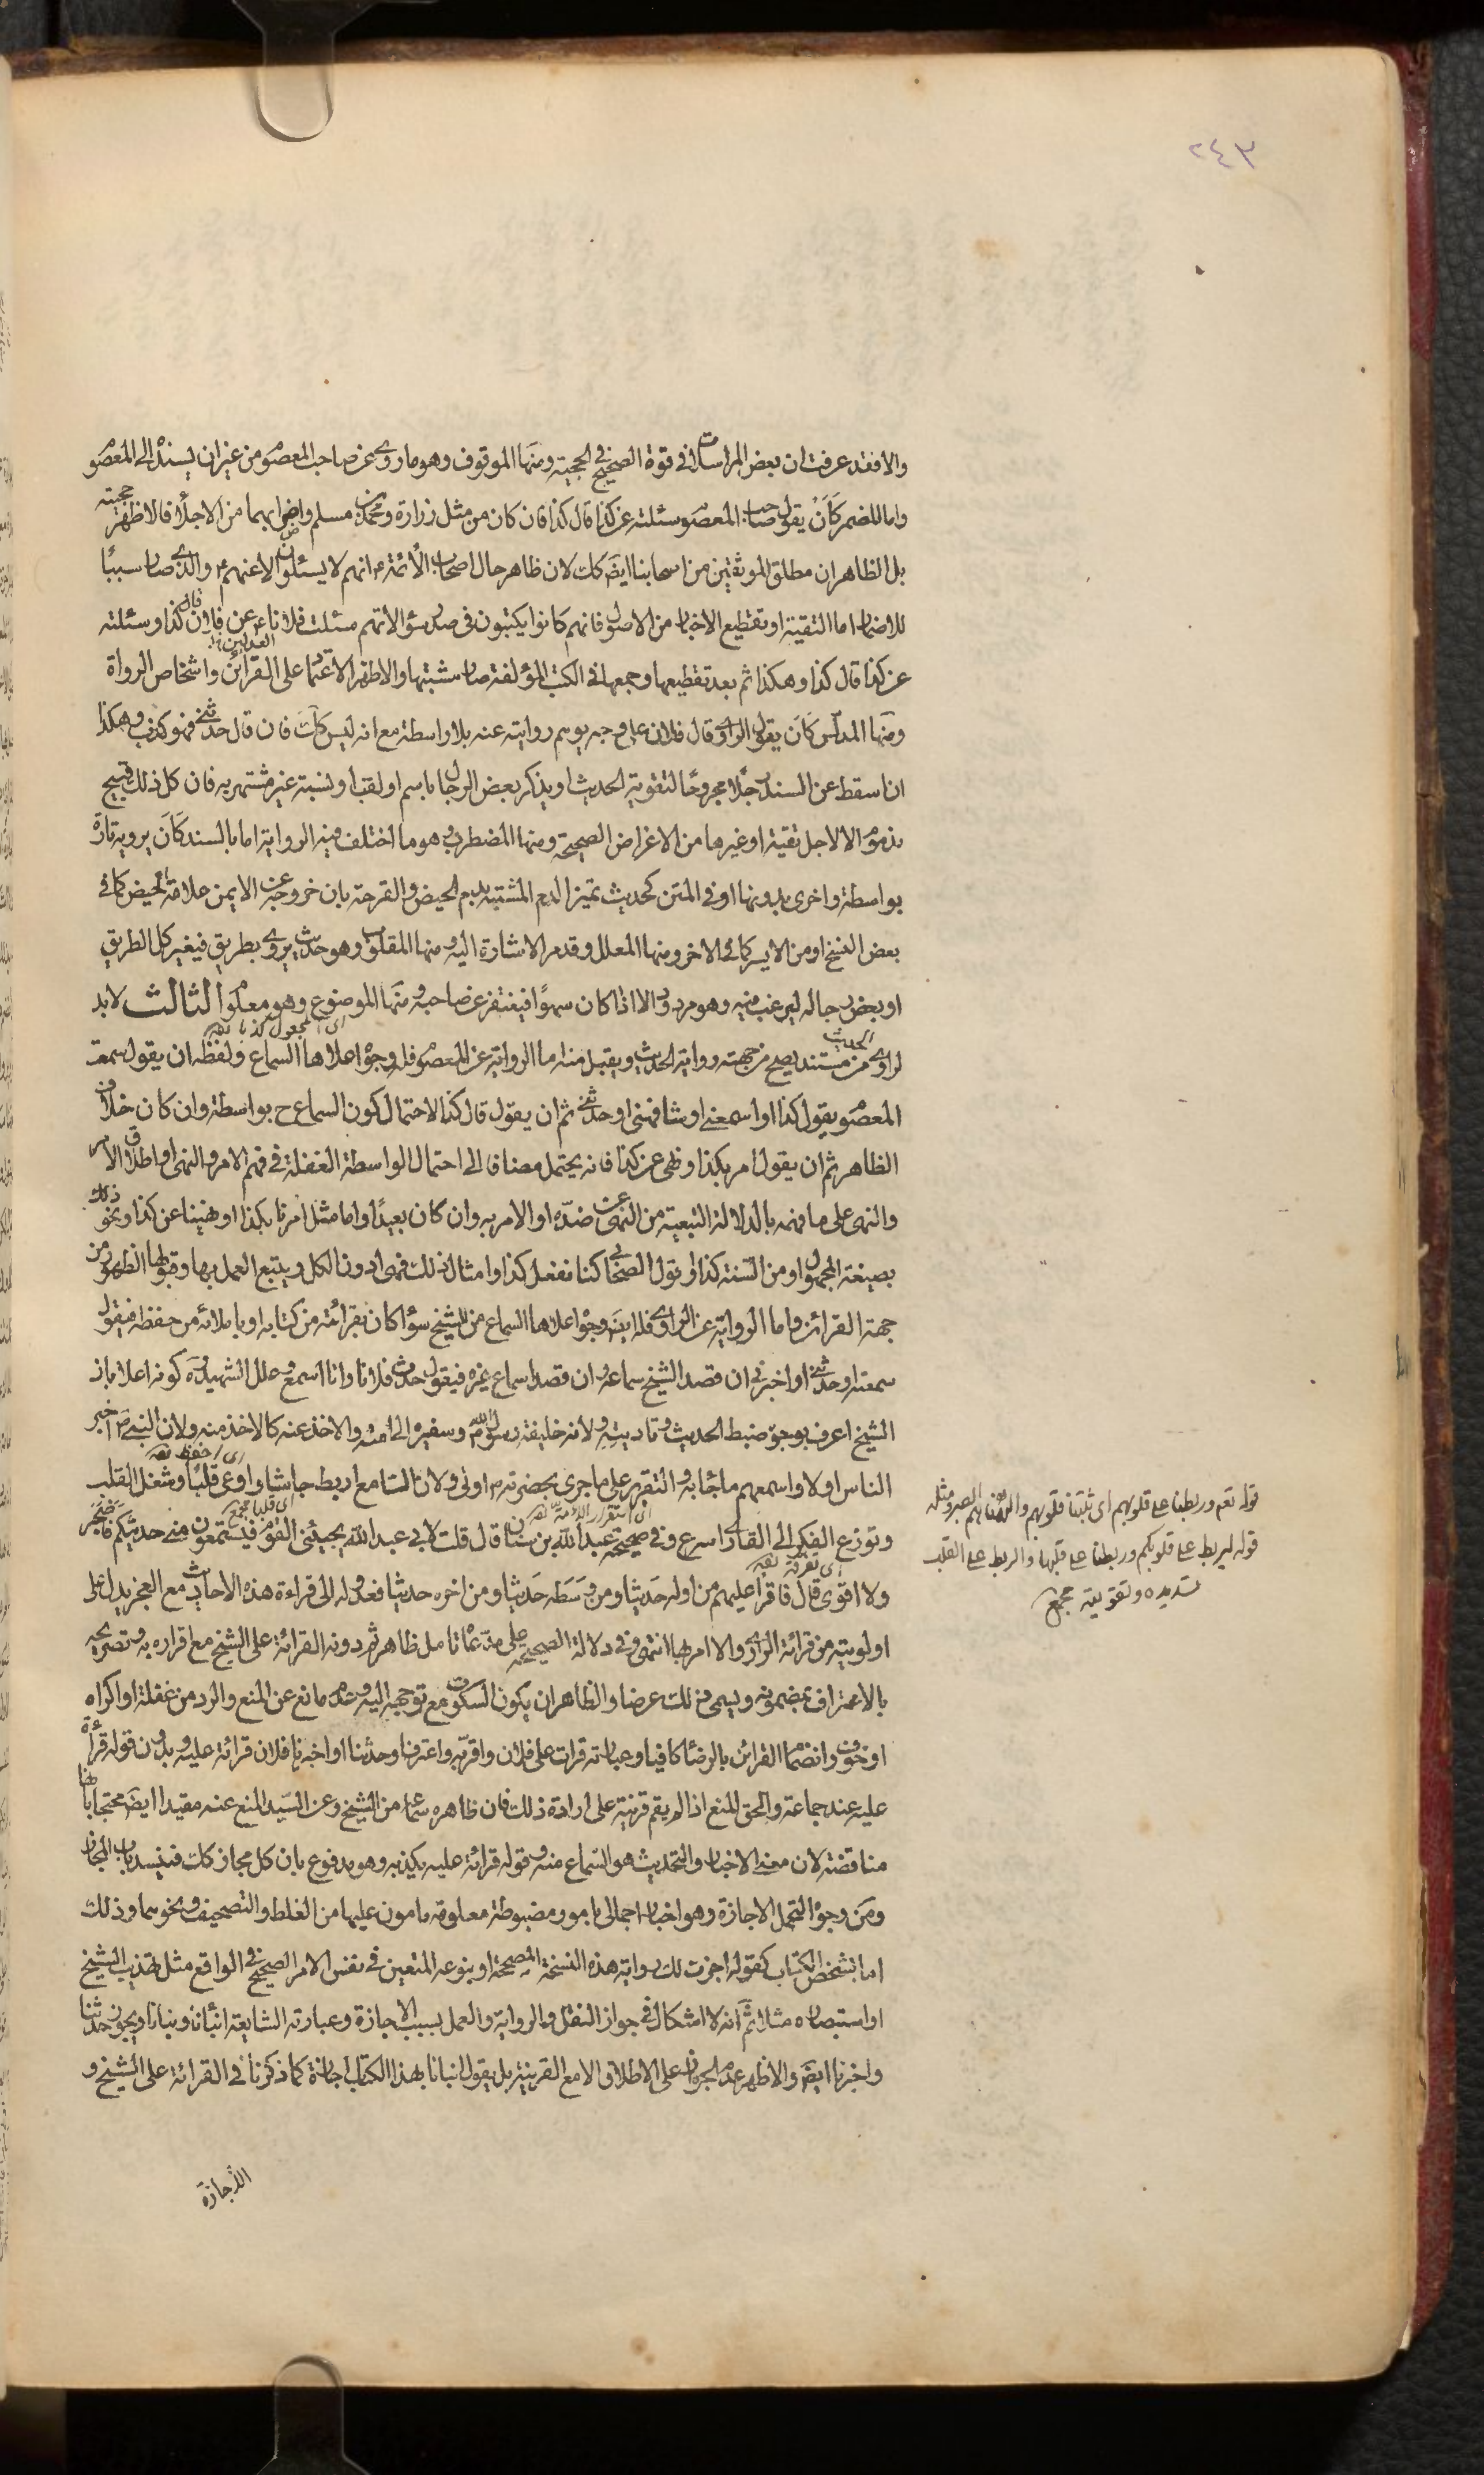 ٢٤٣
والا فقد عرفت ان بعض المراسلات في قوة الصحيح في الحجية ومنها الموقوف وهو ما روى عن صاحب المعصوم من غير ان يسنده الى المعصوم
واما المضمر كَاَن يقول صاحب المعصوم سئلته عن كذا قال كذا فان كان من مثل زرارة ومحمد بن مسلم واضرابهما من الاجلاء فالاظهر حجيته
بل الظاهر ان مطلق الموثقين من اصحابنا ايضَ كك لان ظاهر حال اصحاب الأئمة انهم لا يسئلون الا عنهم والذي صار سببًا
للاضمار اما التقية او تقطيع الاخبار من الاصول فانهم كانوا يكتبون في صدر سؤالاتهم سئلت فلانا عن فلان قال كذا وسئلته
عن كذا قال كذا وهكذا ثم بعد تقطيعها وجمعها في الكتب المؤلفة صار مشتبها والاظهر الاعتماد على القرائن واشخاص الرواة
ومنها المدلّس كَاَن يقول الراوي قال فلان على وجه يوهم روايته عنه بلا واسطة مع انه ليس كك فان قال حدثني فهو كذب وهكذا
ان اسقط عن السند رجلا مجروحًا لتقوية الحديث او يذكر بعض الرجال باسم او لقب او نسبة غير مشتهر به فان كل ذلك قبيح
مذموم الا لاجل تقية او غيرها من الاغراض الصحيحة ومنها المضطرب وهو ما اختلف فيه الرواية اما بالسند كَاَن يرويه تارة
بواسطة واخرى بدونها او في المتن كحديث تميز الدم المشتبه بدم الحيض والقرحة بان خروجه عن الايمن علامة الحيض كما في
بعض النسخ او من الايسر كما في الاخر ومنها المعلل وقد مر الاشارة اليه ومنها المقلوب وهو حديث يروى بطريق فيغير كل الطريق
او بعض رجاله ليرغب فيه وهو مردود الا اذا كان سهوًا فيغتفر عن صاحبه ومنها الموضوع وهو معلوم الثالث لا بد
اى المجعول كذبا
لراوى الحديث من مستند يصح من جهته رواية الحديث ويقبل منه اما الرواية عن المعصوم فله وجوه اعلاها السماع ولفظه ان يقول سمعت
المعصوم يقول كذا او اسمعنى او شافهنى او حدثنى ثم ان يقول قال كذا لاحتمال كون السماع ح بواسطة وان كان خلاف
الظاهر ثم ان يقول امر بكذا ونهى عن كذا فانه يحتمل مضافا الى احتمال الواسطة الغفلة في فهم الامر والنهى او اطلاق الامر
والنهى على ما فهمه بالدلالة التبعية من النهى عن ضدّه او الامر به وان كان بعيدًا واما مثل امرنا بكذا او نهينا عن كذا ونحو ذلك
بصيغة المجهول او من السّنة كذا او قول الصحابي كنا نفعل كذا وامثال ذلك فهى ادون الكل ويتبع العمل بها وقبولها الظهور من
جهة القرائن واما الرواية عن الراوي فله ايضَ وجوه اعلاها السماع من الشيخ سواء كان بقرائته من كتابه او باملائه من حفظه فيقول
سمعته او حدثنى او اخبرنى ان قصد الشيخ سماعه وان قصد اسماع غيره فيقول حدث فلانا وانا اسمع وعلل الشهيد ره كونه اعلا بان
الشيخ اعرف بوجوه ضبط الحديث وتاديته ولانه خليفة رسول اللّه ص وسفيره الى امته والاخذ عنه كالاخذ منه ولان النبي ص اخبر
اى احفظ
الناس اولا واسمعهم ما جائ به والتقرير على ما جرى بحضرته ص اولى ولان السامع اربط جاشا واوعى قلبًا وشغل القلب
وتوزع الفكر الى القارئ اسرع وفي صحيحة عبد الله بن سنان قال قلت لابى عبد الله ع يجيئنى القوم فيستمعون منى حديثكم فاضجر
اى تفرقة
ولا اقوى قال فاقرأ عليهم من اوله حَديثا ومن وَسَطه حَديثا ومن اخره حديثا فعدوله الى قراءة هذه الاحاديث مع العجز يدل على
اولويته من قرائة الراوي والا امر بها انتهى وفى دلالة الصحيحة على مدّعاه تامل ظاهر ثم دونه القرائة على الشيخ مع اقراره به وتصريحه
بالاعتراف بمضمونه ويسمى ذلك عرضا والظاهر ان يكون السكوت مع توجهه اليه وعدم مانع عن المنع والرد من غفلة او اكراه
او خوف وانضمام القرائن بالرضا كافيا وعبارته قرات على فلان واقرّ به واعترف او حدثنا او اخبرنا فلان قرائة عليه وبدون قوله قرأة
عليه عند جماعة والحق المنع اذا لم يقم قرينة على ارادة ذلك فان ظاهره سماعه من الشيخ وعن السّيد المنع عنه مقيدا ايضَ محتجا بانها
مناقضة لان معنى الاخبار والتحديث هو السّماع منه وقوله قرائة عليه يكذبه وهو مدفوع بان كل مجاز كك فينسد باب المجاز
ومن وجوه التحمل الاجازة وهو اخبار اجمالى بامور مضبوطة معلومة مامون عليها من الغلط والتصحيف ونحوهما وذلك
اما بشخص الكتاب كقوله اجزت لك رواية هذه النسخة المصححة او بنوعه المتعين في نفس الامر الصحيح في الواقع مثل تهذيب الشيخ
او استبصاره مثلا ثمّ انه لا اشكال في جواز النقل والرواية والعمل بسبب الاجازة وعبارته الشايعة انبأنا ونبأنا ويجوز حدثنا
واخبرنا ايضَ والاظهر عدم الجواز على الاطلاق الا مع القرينة بل يقول انبانا بهذا الكتاب اجازة كما ذكرنا في القرائة على الشيخ و
الاجازة
قوله تعم وربطنا على قلوبهم اى ثبتنا قلوبهم والهمناهم الصبر ومثله
قوله ليربط على قلوبكم وربطنا على قلبها والربط على القلب
تسديده وتقويته مجمع